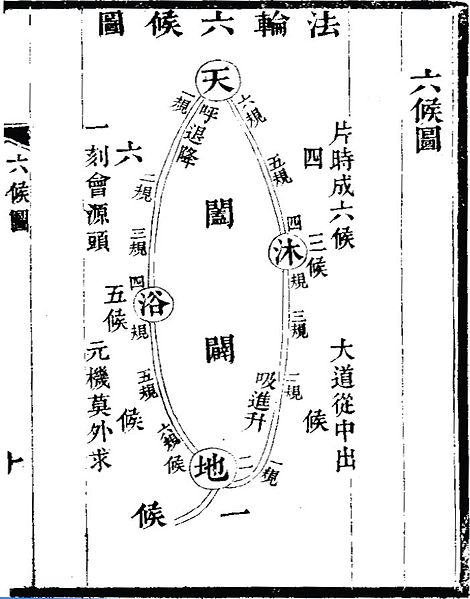 六候圖
法輪六候圖
片時成六候
大道從中出
四候
三候
天
六規
五規
四規
沐
三規
二規
一規
吸進升
闔闢
呼退降
一規
二規
三規
四規
浴
五規
六規
地
二候
一候
六候
五候
一刻會源頭
元機莫外求
六候圖